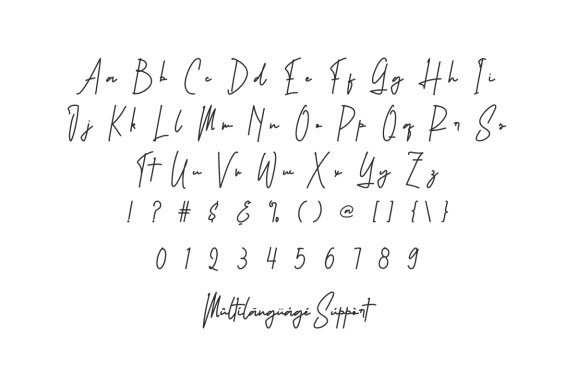 A a B b C c D d E e F f G g H h I i
J j K k L l M m N n O o P p Q q R r S s
T t U u V v W w X x Y y Z z
! ? # $ & % ( ) @ [ ] { \ }
0 1 2 3 4 5 6 7 8 9
Múltilãngüágé Súppòrt